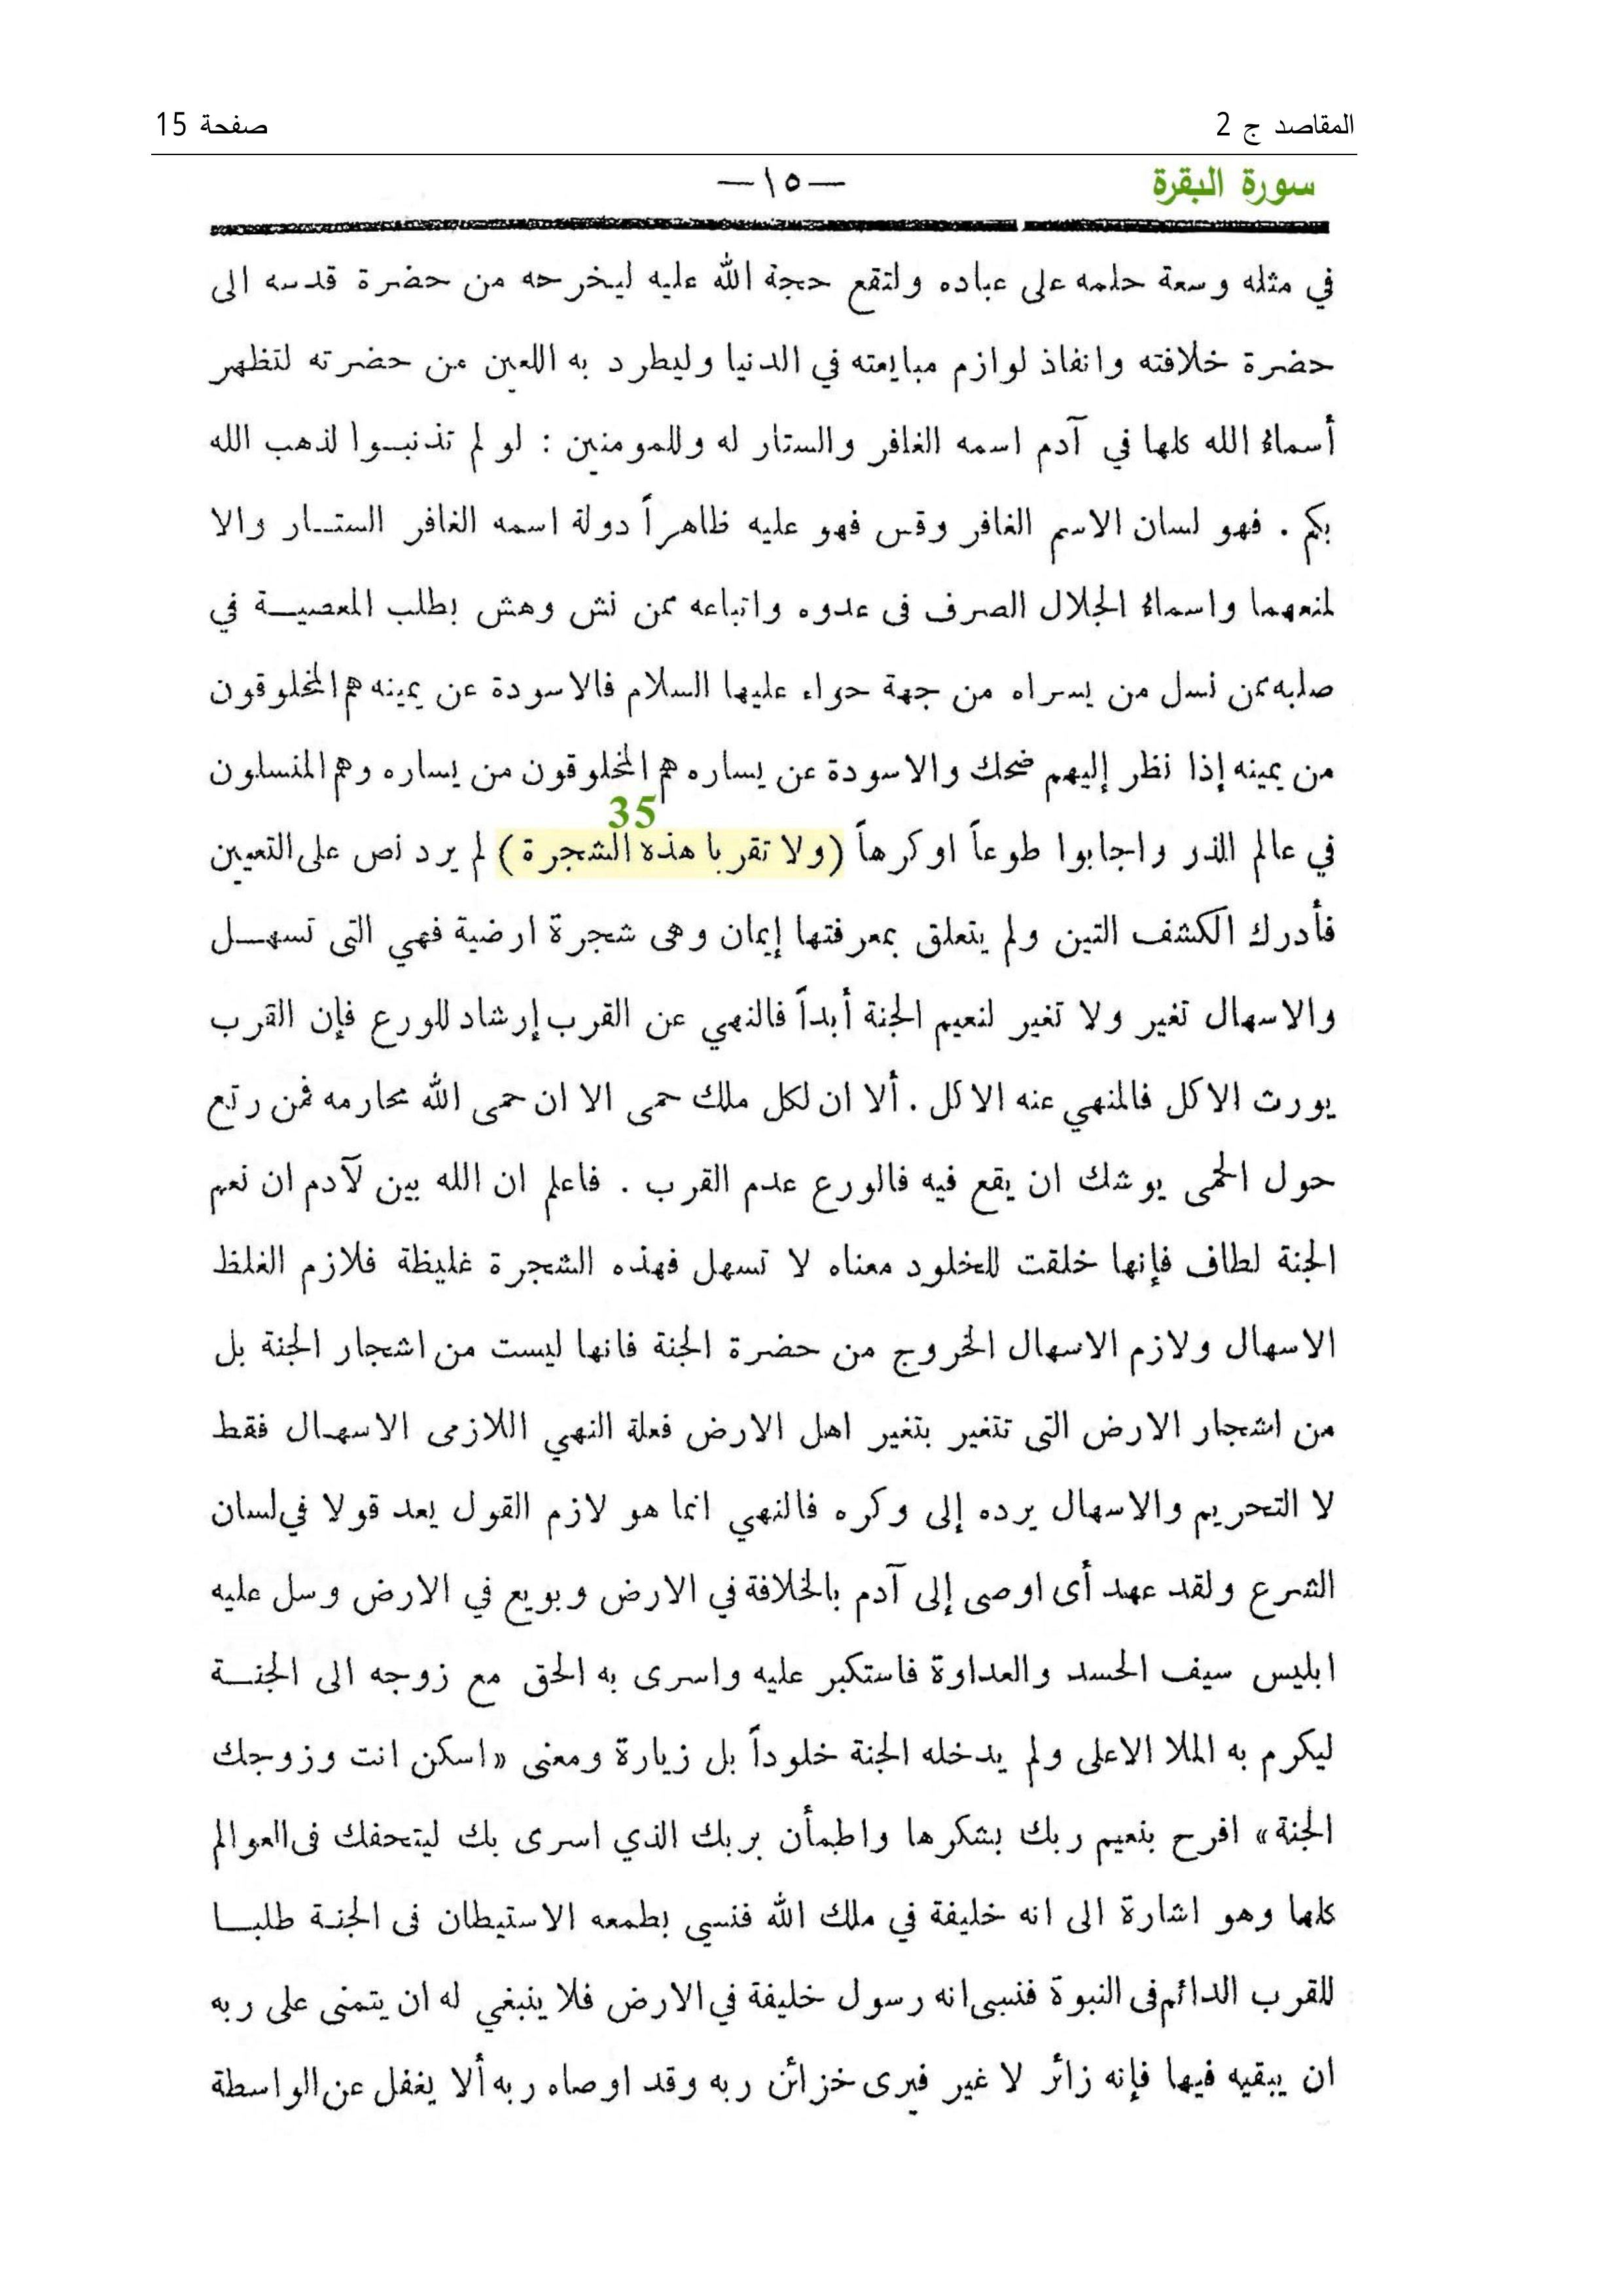 المقاصد ج 2
صفحة 15
سورة البقرة
—١٥—
في مثله وسعة حلمه على عباده ولتقع حجة الله عليه ليخرجه من حضرة قدسه الى
حضرة خلافته وانفاذ لوازم مبايعته في الدنيا وليطرد به اللعين من حضرته لتظهر
أسماءُ الله كلها في آدم اسمه الغافر والستار له وللمومنين : لو لم تذنبـوا لذهب الله
بكم . فهو لسان الاسم الغافر وقس فهو عليه ظاهراً دولة اسمه الغافر الستـار والا
لمنعهما واسماءُ الجلال الصرف فى عدوه واتباعه ممن نش وهش بطلب المعصيـة في
صلبه ممن نسل من يسراه من جهة حواء عليها السلام فالاسودة عن يمينه هم المخلوقون
من يمينه إذا نظر إليهم ضحك والاسودة عن يساره هم المخلوقون من يساره وهم المنسلون
35
في عالم الذر واجابوا طوعاً اوكرهاً (ولا تقربا هذه الشجرة) لم يرد نص على التعيين
فأدرك الكشف التين ولم يتعلق بمعرفتها إيمان وهى شجرة ارضية فهي التى تسهـل
والاسهال تغير ولا تغير لنعيم الجنة أبداً فالنهي عن القرب إرشاد للورع فإن القرب
يورث الاكل فالمنهي عنه الاكل . ألا ان لكل ملك حمى الا ان حمى الله محارمه فمن رتع
حول الحمى يوشك ان يقع فيه فالورع عدم القرب . فاعلم ان الله بين لآدم ان نعيم
الجنة لطاف فإنها خلقت للخلود معناه لا تسهل فهذه الشجرة غليظة فلازم الغلظ
الاسهال ولازم الاسهال الخروج من حضرة الجنة فانها ليست من اشجار الجنة بل
من اشجار الارض التى تتغير بتغير اهل الارض فعلة النهي اللازمى الاسهال فقط
لا التحريم والاسهال يرده إلى وكره فالنهي انما هو لازم القول يعد قولا في لسان
الشرع ولقد عهد أى اوصى إلى آدم بالخلافة في الارض وبويع في الارض وسل عليه
ابليس سيف الحسد والعداوة فاستكبر عليه واسرى به الحق مع زوجه الى الجنـة
ليكرم به الملا الاعلى ولم يدخله الجنة خلوداً بل زيارة ومعنى «اسكن انت وزوجك
الجنة» افرح بنعيم ربك بشكرها واطمأن بربك الذي اسرى بك ليتحفك فى العوالم
كلها وهو اشارة الى انه خليفة في ملك الله فنسي بطمعه الاستيطان فى الجنة طلبـا
للقرب الدائم فى النبوة فنسى انه رسول خليفة في الارض فلا ينبغي له ان يتمنى على ربه
ان يبقيه فيها فإنه زائر لا غير فيرى خزائن ربه وقد اوصاه ربه ألا يغفل عن الواسطة